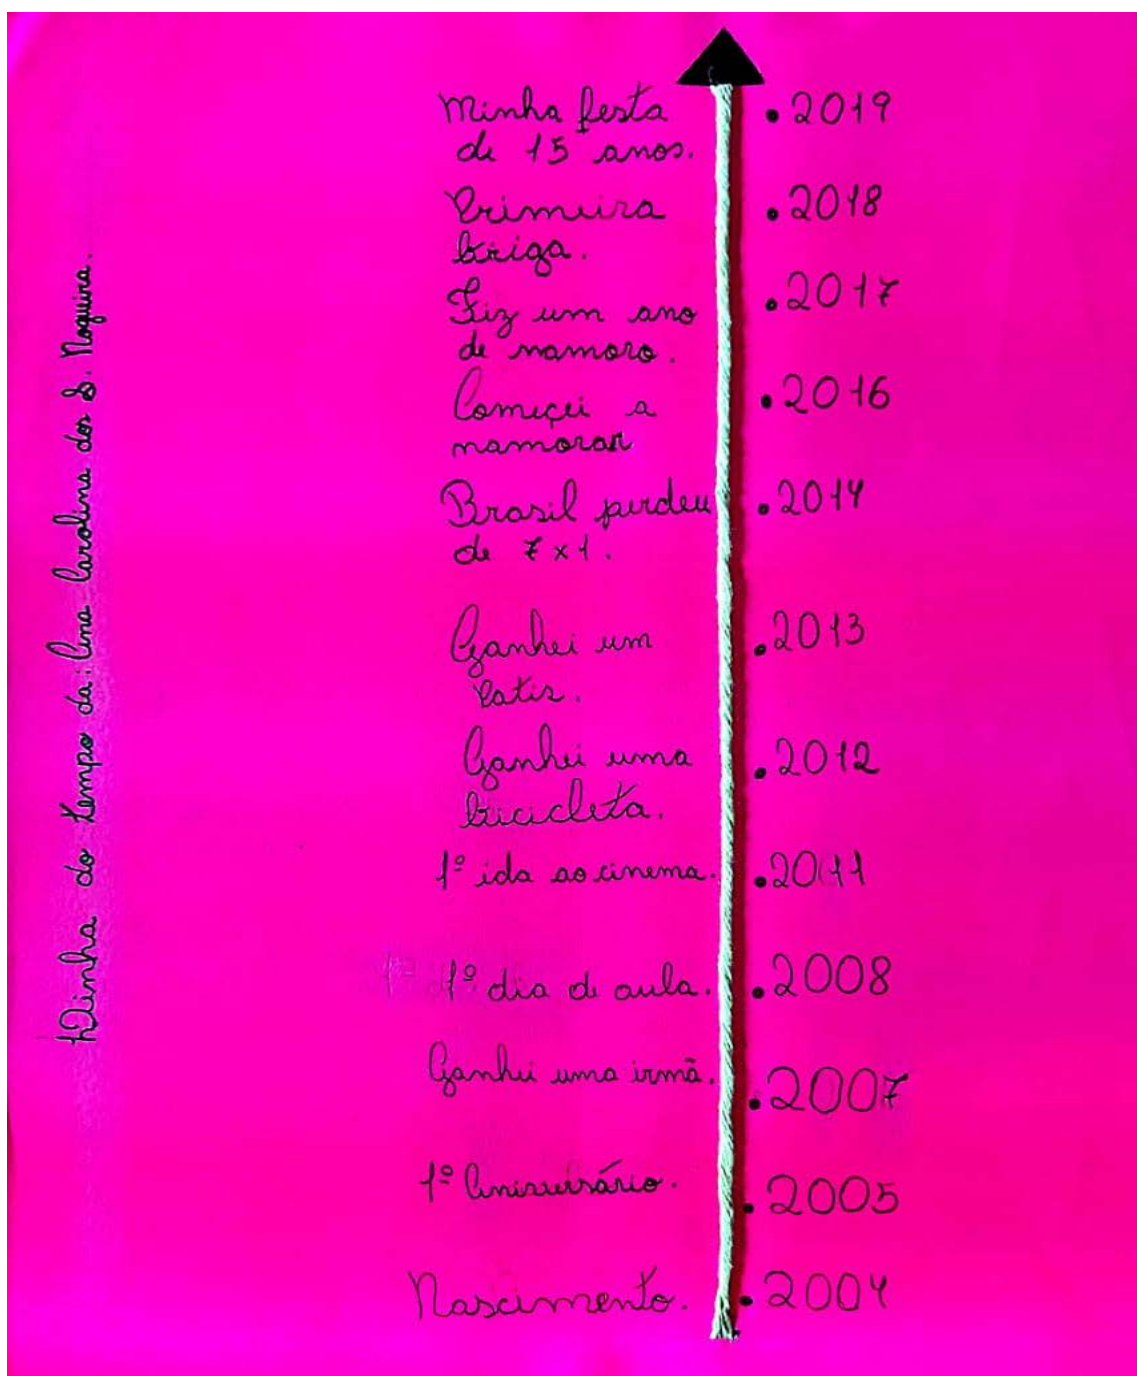 Linha do tempo da: Ana Carolina dos S. Nogueira.
Minha festa
de 15 anos.
• 2019
Primeira
briga.
• 2018
Fiz um ano
de namoro.
• 2017
Começei a
namorar
• 2016
Brasil perdeu
de 7x1.
• 2014
Ganhei um
Patis.
• 2013
Ganhei uma
bicicleta.
• 2012
1º ida ao cinema.
• 2011
1º dia de aula.
• 2008
Ganhei uma irmã.
• 2007
1º Aniversário.
• 2005
Nascimento.
• 2004